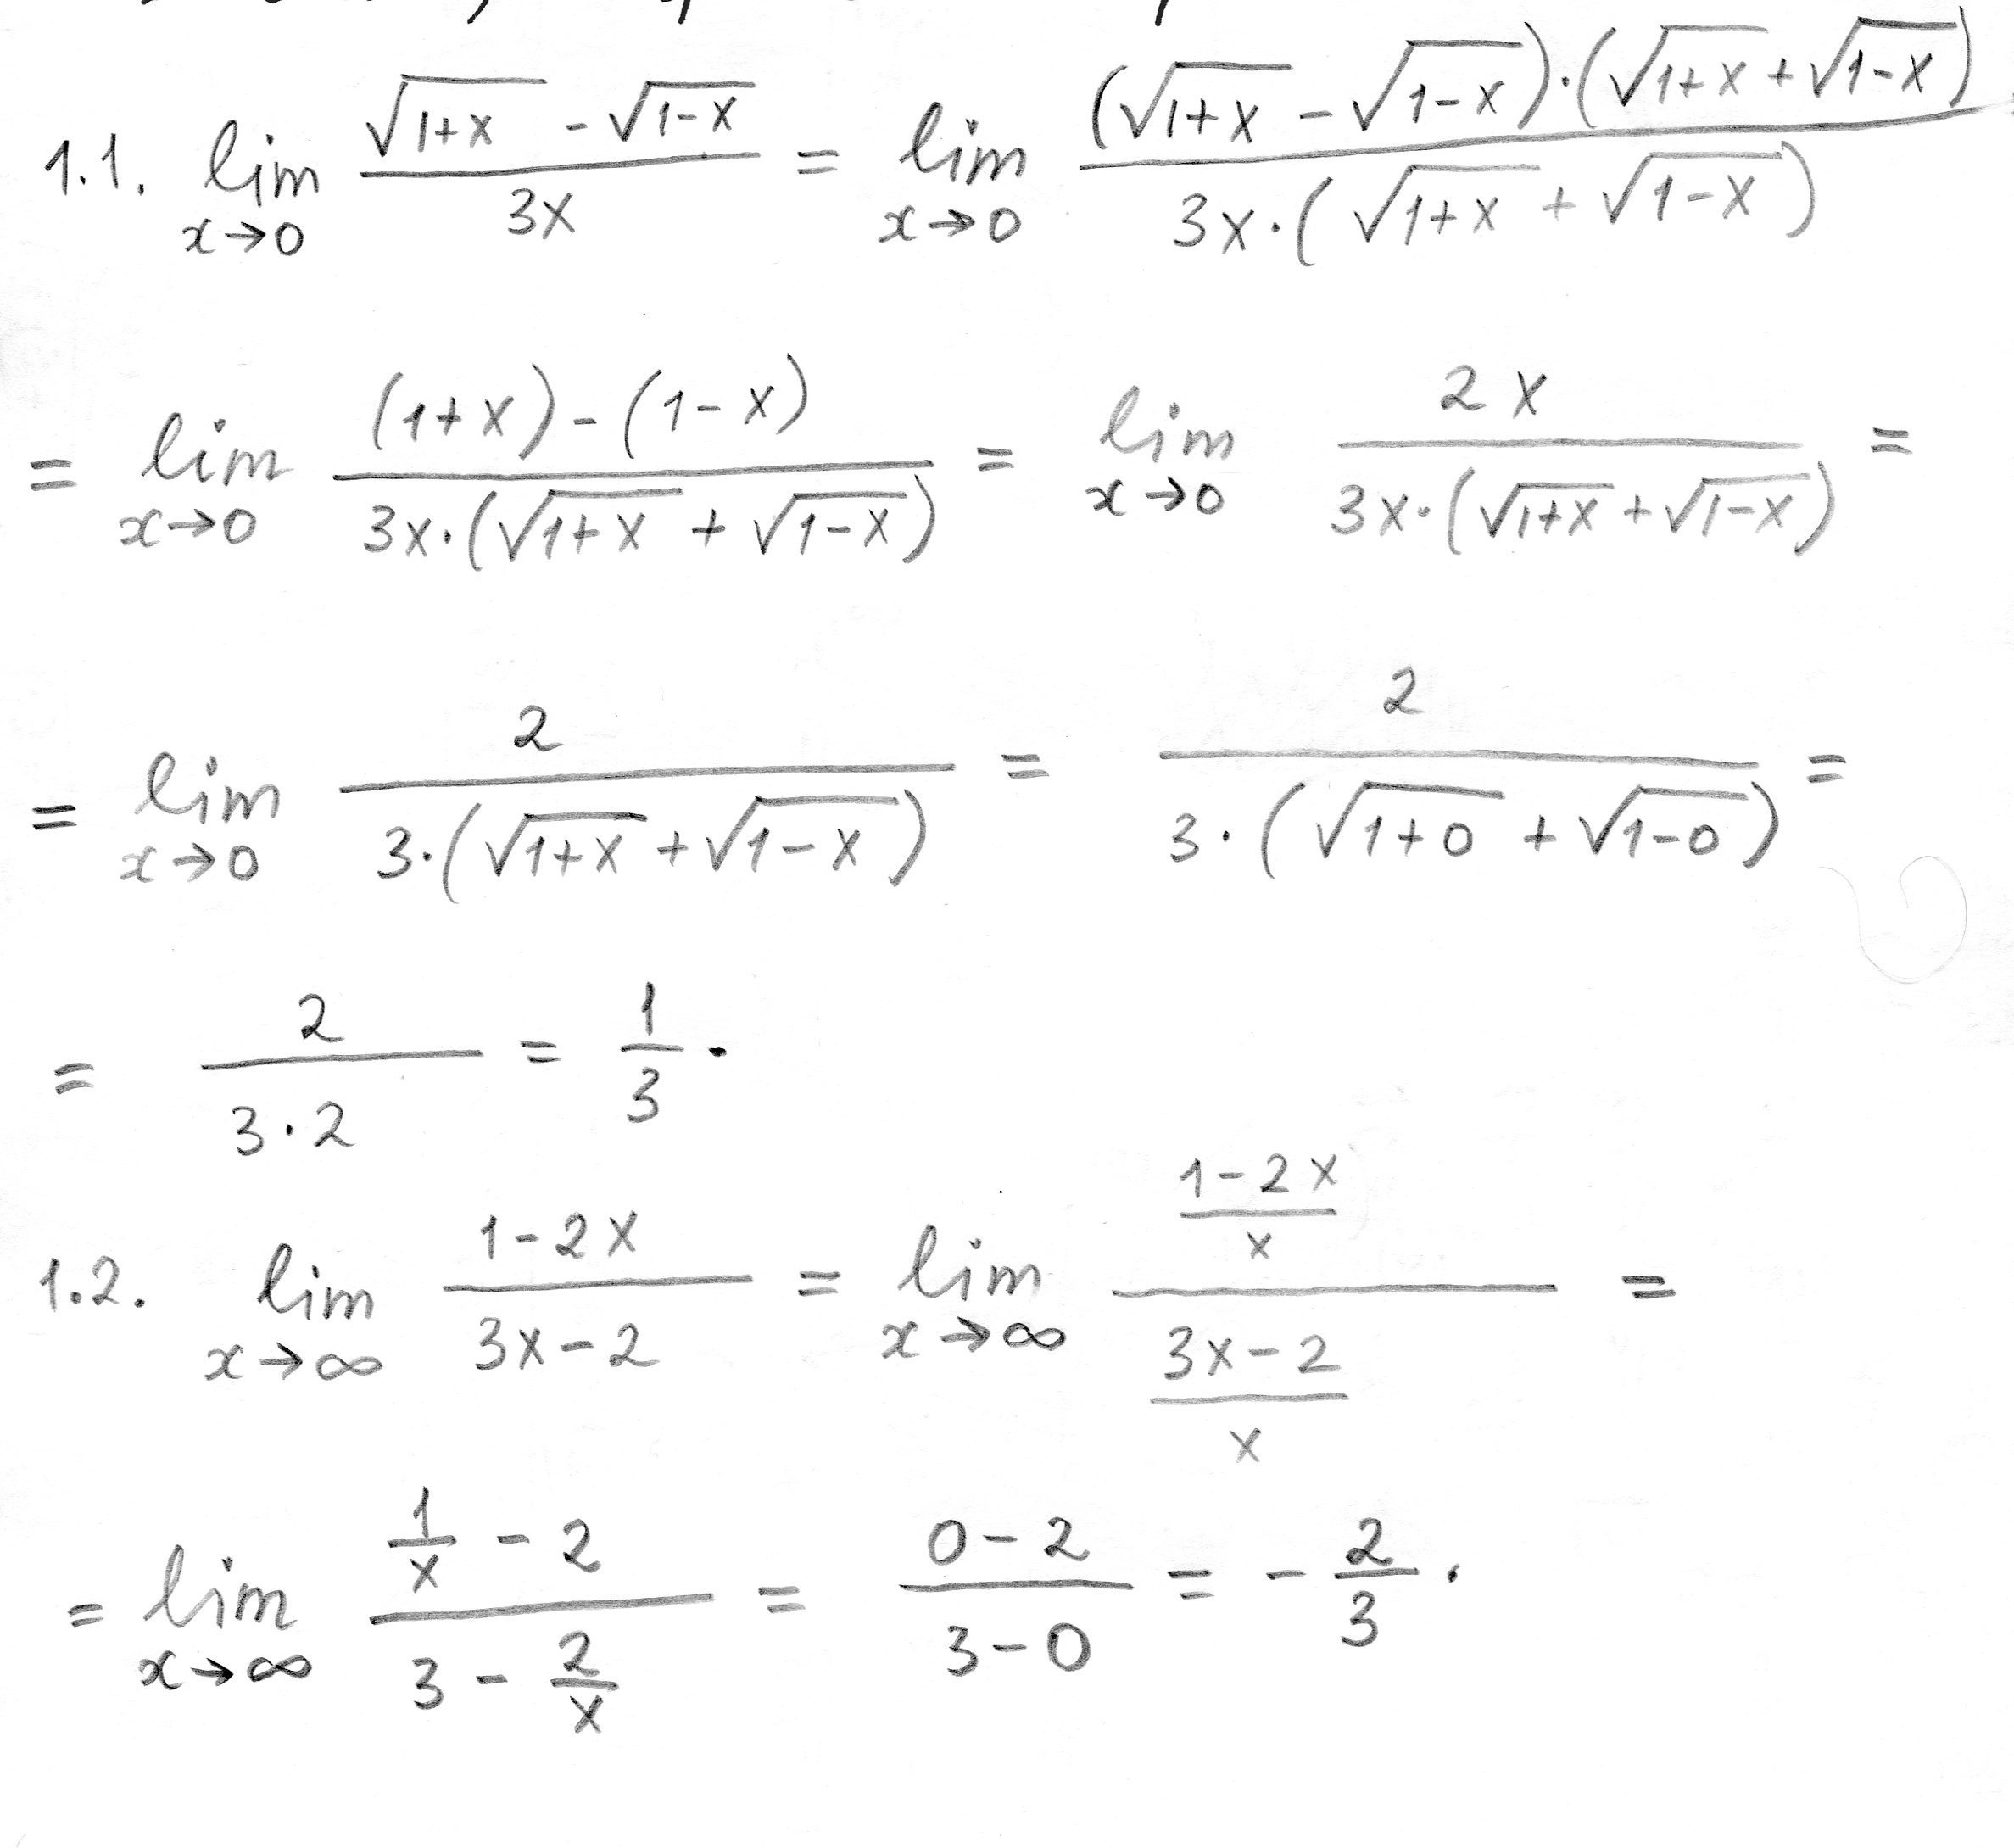 1.1. lim_{x→0} (√(1+x) - √(1-x))/(3x) = lim_{x→0} ((√(1+x) - √(1-x))·(√(1+x) + √(1-x)))/(3x·(√(1+x) + √(1-x)))
= lim_{x→0} ((1+x)-(1-x))/(3x·(√(1+x) + √(1-x))) = lim_{x→0} (2x)/(3x·(√(1+x) + √(1-x))) =
= lim_{x→0} 2/(3·(√(1+x) + √(1-x))) = 2/(3·(√(1+0) + √(1-0))) =
= 2/(3·2) = 1/3.
1.2. lim_{x→∞} (1-2x)/(3x-2) = lim_{x→∞} ((1-2x)/x)/((3x-2)/x) =
= lim_{x→∞} (1/x - 2)/(3 - 2/x) = (0-2)/(3-0) = -2/3.